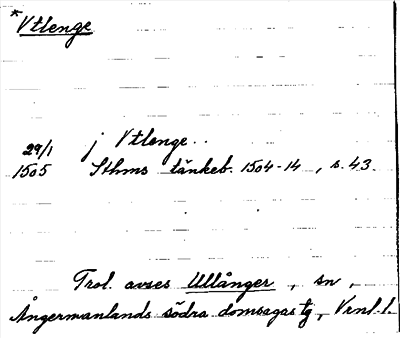 *Vtlenge
29/1 j Vtlenge..
1505 Sthms tänkeb. 1504-14, s. 43.
Trol. avses Ullånger, sn,
Ångermanlands södra domsagas tg, Vrnl. l.